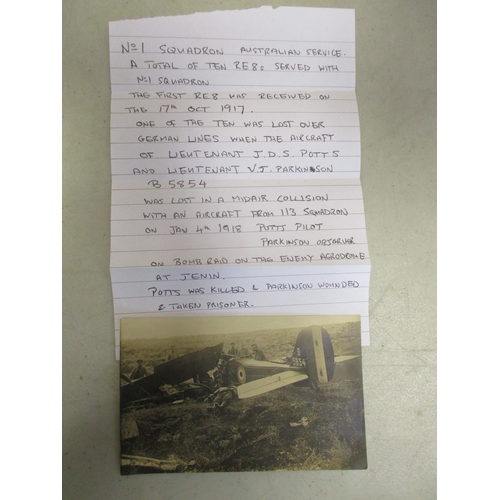 No 1 SQUADRON AUSTRALIAN SERVICE.
A TOTAL OF TEN RE8s SERVED WITH
No1 SQUADRON
THE FIRST RE8 WAS RECEIVED ON
THE 17th OCT 1917.
ONE OF THE TEN WAS LOST OVER
GERMAN LINES WHEN THE AIRCRAFT
OF LIEUTENANT J.D.S. POTTS
AND LIEUTENANT V.J. PARKINSON
B 5854
WAS LOST IN A MIDAIR COLLISION
WITH AN AIRCRAFT FROM 113 SQUADRON
ON JAN 4th 1918 POTTS PILOT
PARKINSON OBSERVER
ON BOMB RAID ON THE ENEMY AERODROME
AT JENIN.
POTTS WAS KILLED & PARKINSON WOUNDED
& TAKEN PRISONER.
B
5854